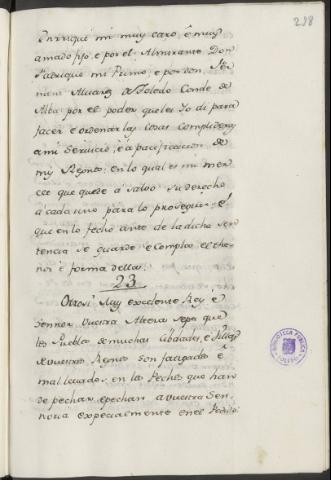 218
Enrrique mi muy caro, é muy
amado fijo, e por el Almirante Don
Fadrique mi Primo, e por don Fer
nand Alvarez de Toledo Conde de
Alba por el poder que les Yo di para
facer e ordenar las cosas complideras
a mi servicio, é a pacificacion de
mis Reynos: en lo qual es mi mer
cet que quede á salvo su derecho
a cada uno para lo proseguir: é
que en lo fecho ante de la dicha sen
tencia se guarde e cumpla el the
nor é forma della.
23
Otrosi Muy excelente Rey é
Sennor Vuestra Alteza sepa que
los Pueblos de muchas Cibdades, é Villas
de vuestros Regnos son fatigados é
mal levados en los Pechos que han
de pechar, e pechan a vuestra Sen
noria especialmente en el Pedido:
BIBLIOTECA PUBLICA
TOLEDO